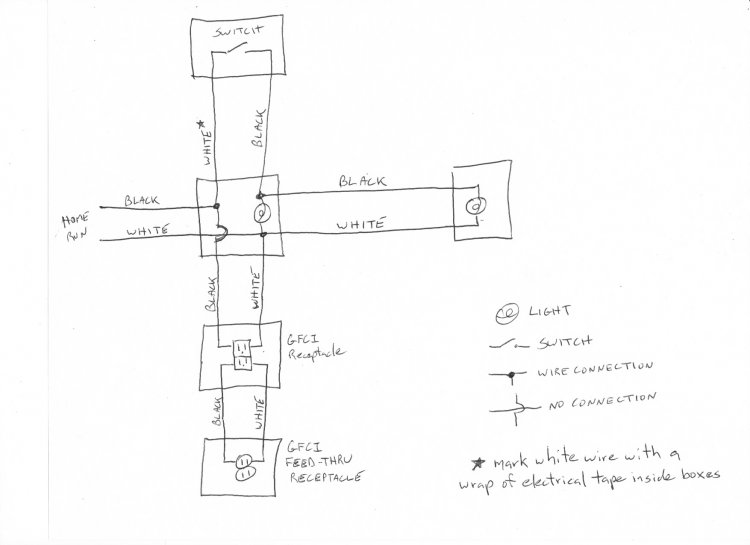 SWITCH
WHITE★
BLACK
BLACK
HOME
RUN
WHITE
BLACK
WHITE
BLACK
WHITE
GFCI
Receptacle
BLACK
WHITE
GFCI
FEED-THRU
RECEPTACLE
LIGHT
SWITCH
WIRE CONNECTION
NO CONNECTION
★ mark white wire with a
wrap of electrical tape inside boxes